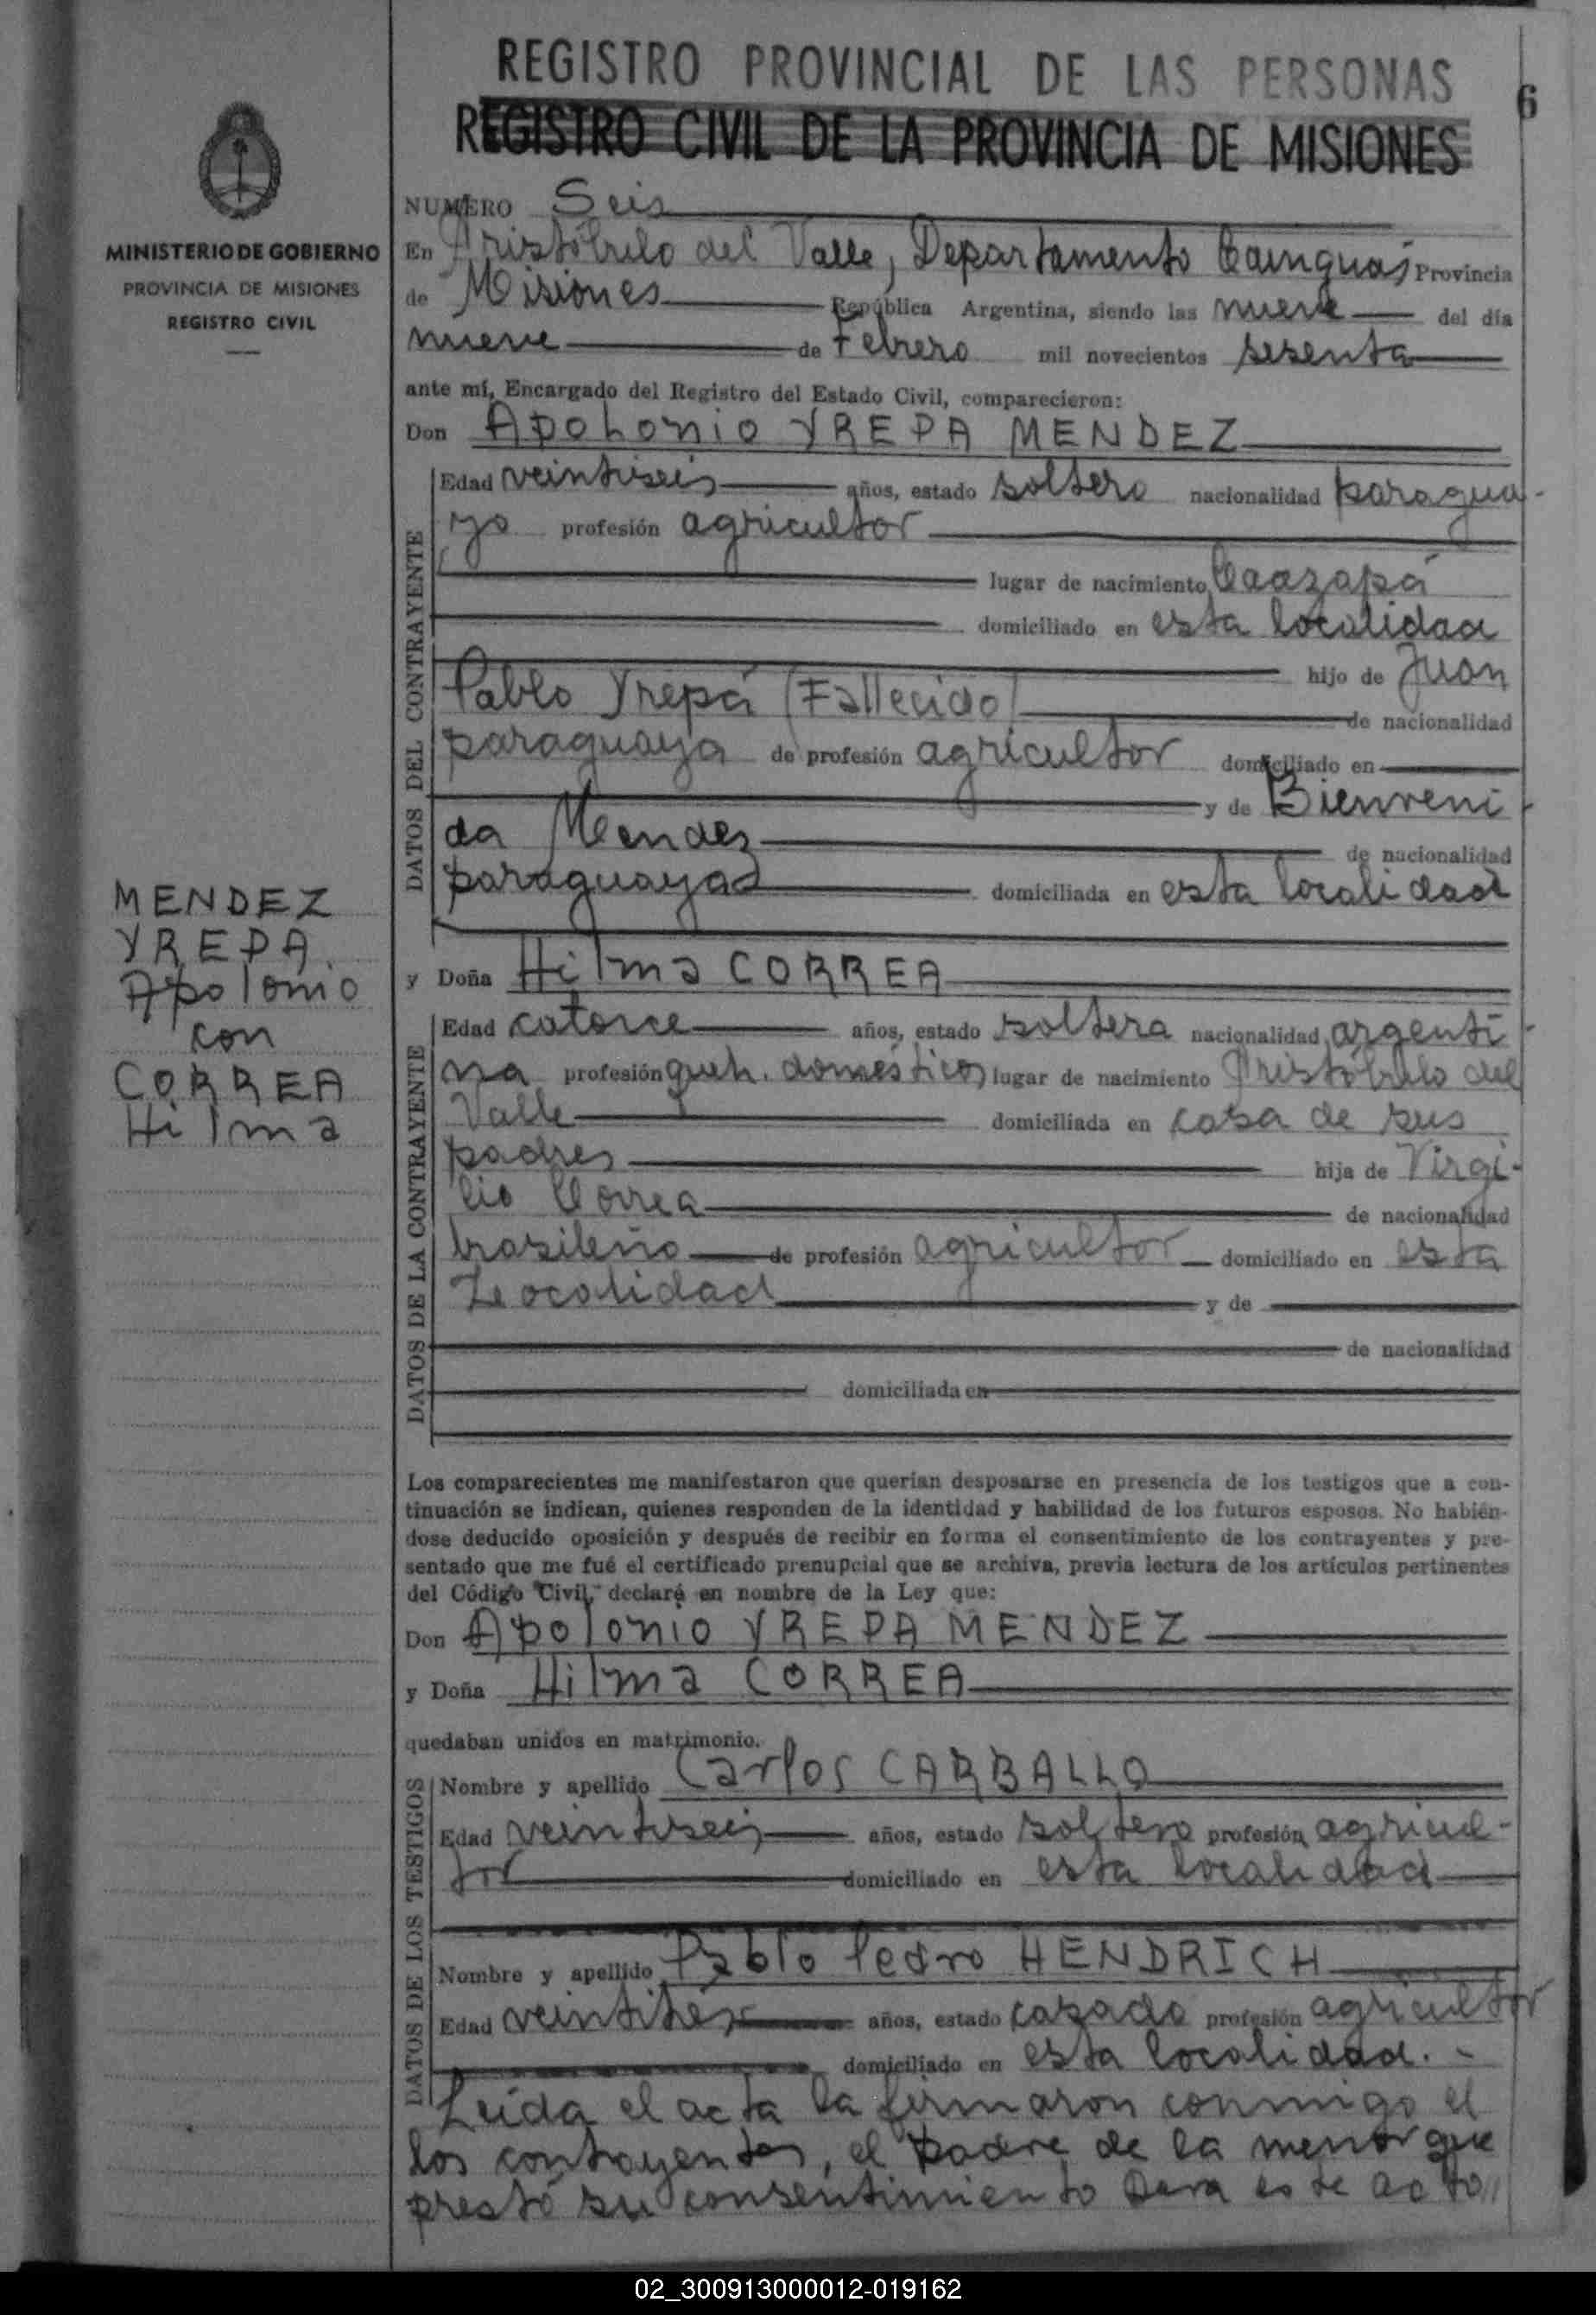 REGISTRO PROVINCIAL DE LAS PERSONAS
6
REGISTRO CIVIL DE LA PROVINCIA DE MISIONES
MINISTERIO DE GOBIERNO
PROVINCIA DE MISIONES
REGISTRO CIVIL
NUMERO Seis
En Aristóbulo del Valle, Departamento Cainguás Provincia
de Misiones República Argentina, siendo las nueve del día
nueve de Febrero mil novecientos sesenta
ante mí, Encargado del Registro del Estado Civil, comparecieron:
Don Apolonio YREPA MENDEZ
DATOS DEL CONTRAYENTE
Edad veintiseis años, estado soltero nacionalidad paragua-
yo profesión agricultor
lugar de nacimiento Caazapá
domiciliado en esta localidad
hijo de Juan
Pablo Yrepá (Fallecido) de nacionalidad
paraguaya de profesión agricultor domiciliado en
y de Bienveni-
da Mendez de nacionalidad
paraguaya domiciliada en esta localidad
MENDEZ
YREPA
Apolonio
con
CORREA
Hilma
y Doña Hilma CORREA
DATOS DE LA CONTRAYENTE
Edad catorce años, estado soltera nacionalidad argenti-
na profesión queh. domésticos lugar de nacimiento Aristóbulo del
Valle domiciliada en casa de sus
padres hija de Virgi-
lio Correa de nacionalidad
brasileño de profesión agricultor domiciliado en esta
Localidad y de
de nacionalidad
domiciliada en
Los comparecientes me manifestaron que querían desposarse en presencia de los testigos que a con-
tinuación se indican, quienes responden de la identidad y habilidad de los futuros esposos. No habién-
dose deducido oposición y después de recibir en forma el consentimiento de los contrayentes y pre-
sentado que me fué el certificado prenupcial que se archiva, previa lectura de los artículos pertinentes
del Código Civil, declaré en nombre de la Ley que:
Don Apolonio YREPA MENDEZ
y Doña Hilma CORREA
quedaban unidos en matrimonio.
DATOS DE LOS TESTIGOS
Nombre y apellido Carlos CARBALLO
Edad veintiseis años, estado soltero profesión agricul-
tor domiciliado en esta localidad
Nombre y apellido Pablo Pedro HENDRICH
Edad veintitrés años, estado casado profesión agricultor
domiciliado en esta localidad. -
Leída el acta la firmaron conmigo el
los contrayentes, el padre de la menor que
prestó su consentimiento para este acto //
02_300913000012-019162